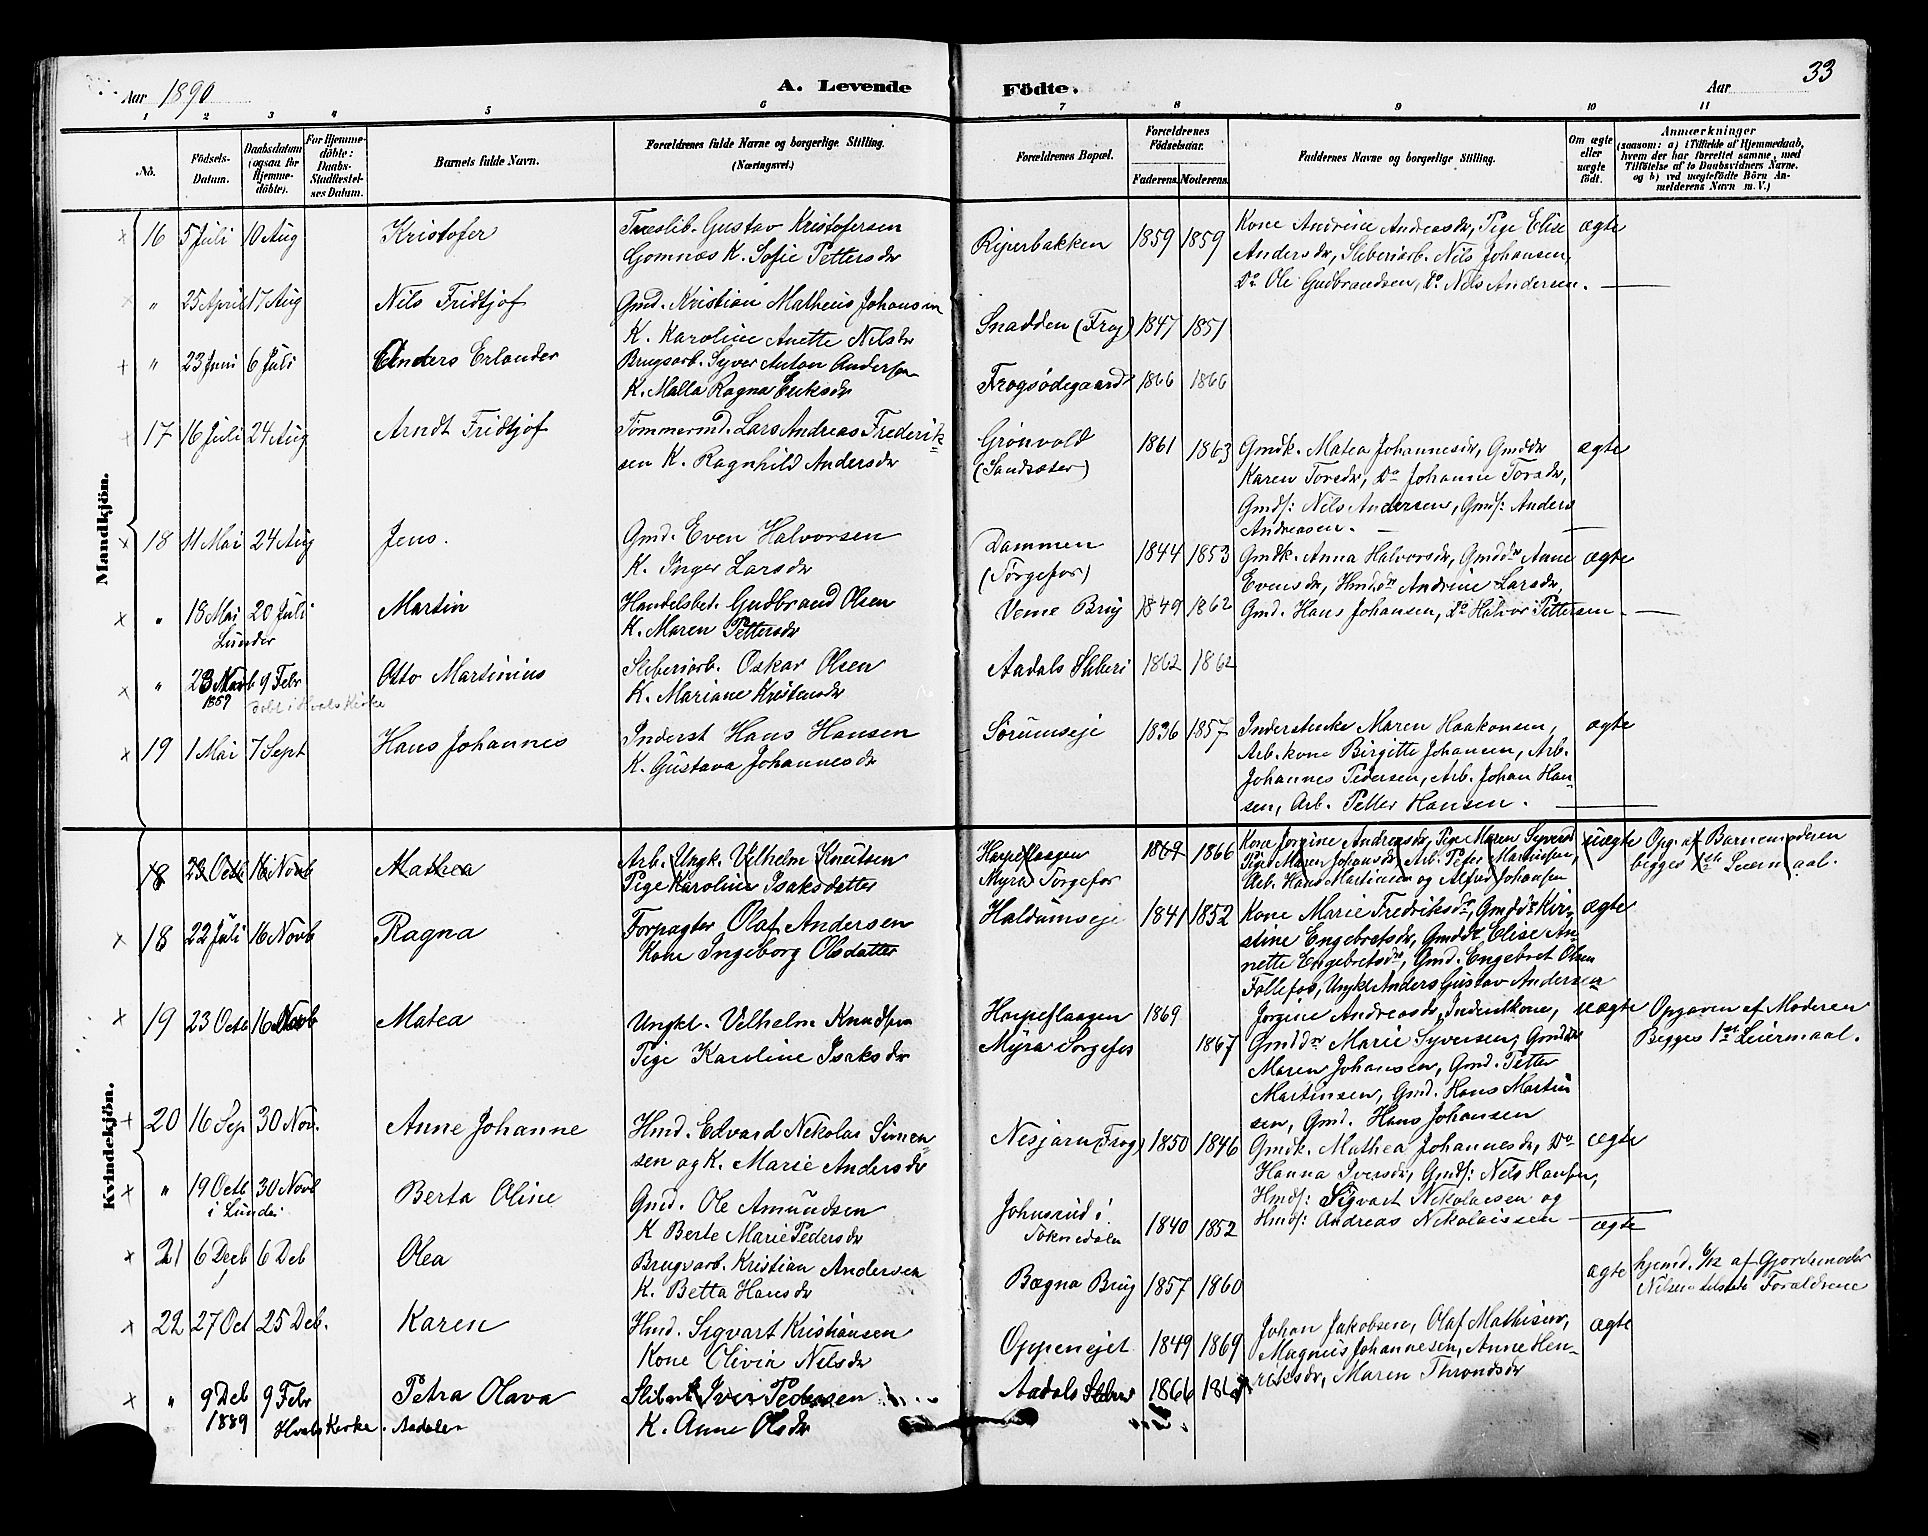 Aar 1890
A. Levende
Födte.
Aar
33
1 2 3 4 5 6 7 8 9 10 11
No.
Födsels-Datum.
Daabsdatum (ogsaa for Hjemme-döbte).
For Hjemme-döbte: Daabs-Stadfæstel-ses Datum.
Barnets fulde Navn.
Forældrenes fulde Navne og borgerlige Stilling. (Næringsvei.)
Forældrenes Bopæl.
Forældrenes Födselsaar.
Faderens. Moderens.
Faddernes Navne og borgerlige Stilling.
Om ægte eller uægte födt.
Anmærkninger
(saasom: a) i Tilfælde af Hjemmedaab, hvem der har forrettet samme, med Tilföielse af to Daabsvidners Navne. og b) ved uægtefödte Börn Anmelderens Navn m. V.)
Mandkjön.
16 5 Juli 10 Aug Kristofer
Træslib. Gustav Kristofersen
Gomnæs K. Sofie Pettersdr
Riperbakken 1859 1859
Kone Andrine Andreasdr, Pige Elise
Andersdr, Sliberiarb. Nils Johansen,
Do Ole Gudbrandsen, Do Nils Andersen.
ægte
" 25 April 17 Aug Nils Fridtjof
Gmd. Kristian Matheus Johansen
K. Karoline Anette Nilsdr
Snadden (Frog) 1847 1851
" 23 Juni 6 Juli Anders Erlander
Brugsarb. Syver Anton Andersen
K. Malla Ragna Eriksdr
Frogsødegaard 1866 1866
17 16 Juli 24 Aug Arndt Fridtjof
Tømmermd. Lars Andreas Frederik
sen K. Ragnhild Andersdr
Grønvold
(Sandsæter)
1861 1863
Gmdk. Matea Johannesdr, Gmddr
Karen Torsdr, Do Johanne Torsdr,
Gmds: Nils Andersen, Gmds: Anders
Andreasen.
ægte
18 11 Mai 24 Aug Jens.
Gmd. Even Halvorsen
K. Inger Larsdr
Dammen
(Sørgefos)
1844 1853
Gmdk. Anna Halvorsdr, Gmddr Anne
Evensdr, Hmddr Andrine Larsdr,
Gmd. Hans Johansen, Do Halvor Pettersen
ægte
" 18 Mai 20 Juli Martin
Lunder
Handelsbet. Gudbrand Olsen
K. Maren Pettersdr
Veme Brug 1849 1862
" 23 Novb 9 Febr Otto Martinius
1889 døbt i Hvals Kirke
Sliberiarb. Oskar Olsen
K. Mariane Kristensdr
Aadals Sliberi 1862 1862
19 1 Mai 7 Sept Hans Johannes
Inderst Hans Hansen
K. Gustava Johannesdr
Sørumseje 1836 1857
Inderstenke Maren Haakonsen,
Arb. kone Birgitte Johansen, Arb.
Johannes Pedersen, Arb. Johan Han-
sen, Arb. Petter Hansen.
ægte
Kvindekjön.
18 23 Octb 16 Novb Mathea
Arb. Ungk. Vilhelm Knutsen
Pige Karoline Isaksdatter
Harpeflaagen
Myra Sørgefos
1869 1866
Kone Jorgine Andreasdr, Pige Maren Syversd
Pige Maren Johansdr, Arb. Peter Martinsen,
Arb. Hans Martinsen og Alfred Johansen
uægte
Opg. af Barnemoderen
begges 1ste Leiermaal.
18 22 Juli 16 Novb Ragna
Forpagter Olaf Andersen
Kone Ingeborg Olsdatter
Haldumseje 1841 1852
Kone Marie Fredriksdr, Gmddr Kri-
stine Engebretsdr, Gmddr Elise An-
nette Engebretsdr, Gmd. Engebret Olsen
Follefos, Ungkl Anders Gustav Andersen
ægte
19 23 Octb 16 Novb Matea
Ungkl. Vilhelm Knudsen
Pige Karoline Isaksdr
Harpeflaagen 1869
Myra Sørgefos 1867
Jorgine Andreasdr, Inderstkone,
Gmddr Marie Syversen, Gmddr
Maren Johansen, Gmd. Petter
Martinsen, Gmd. Hans Martin
sen, Gmd. Hans Johansen
uægte
Opgaven af Moderen
Begges 1ste Leiermaal.
20 16 Sep 30 Nov. Anne Johanne
Hmd. Edvard Nikolai Simen
sen og K. Marie Andersdr
Nesjarn (Frog) 1850 1846
Gmdk. Mathea Johannesdr, Do
Hanna Iversdr, Gmds: Nels Hansen,
Hmds: Sigvart Nikolaisen og
Hmds: Andreas Nikolaissen
ægte
" 19 Octb 30 Novb Berta Oline
i Lunder
Gmd. Ole Amundsen
K Berte Marie Pedersdr
Johnsrud i
Soknedalen
1840 1852
ægte
21 6 Decb 6 Deb Olea
Brugsarb. Kristian Andersen
K. Betta Hansdr
Bægna Brug 1857 1860
ægte
hjemd. 6/12 af Gjordemoder
Nilsen tilstede Forældrene
22 27 Oct 25 Deb. Karen
Hmd. Sigvart Kristiansen
Kone Olivia Nilsdr
Oppenejet 1849 1869
Johan Jakobsen, Olaf Mathisen,
Magnus Johannesen, Anne Hen-
riksdr, Maren Throndsdr
ægte
" 9 Deb 9 Febr Petra Olava
1889 Hvals Kirke. Aadalen
Slibarb Iver Pedersen
K. Anne Olsdr
Aadals Sliberi 1866